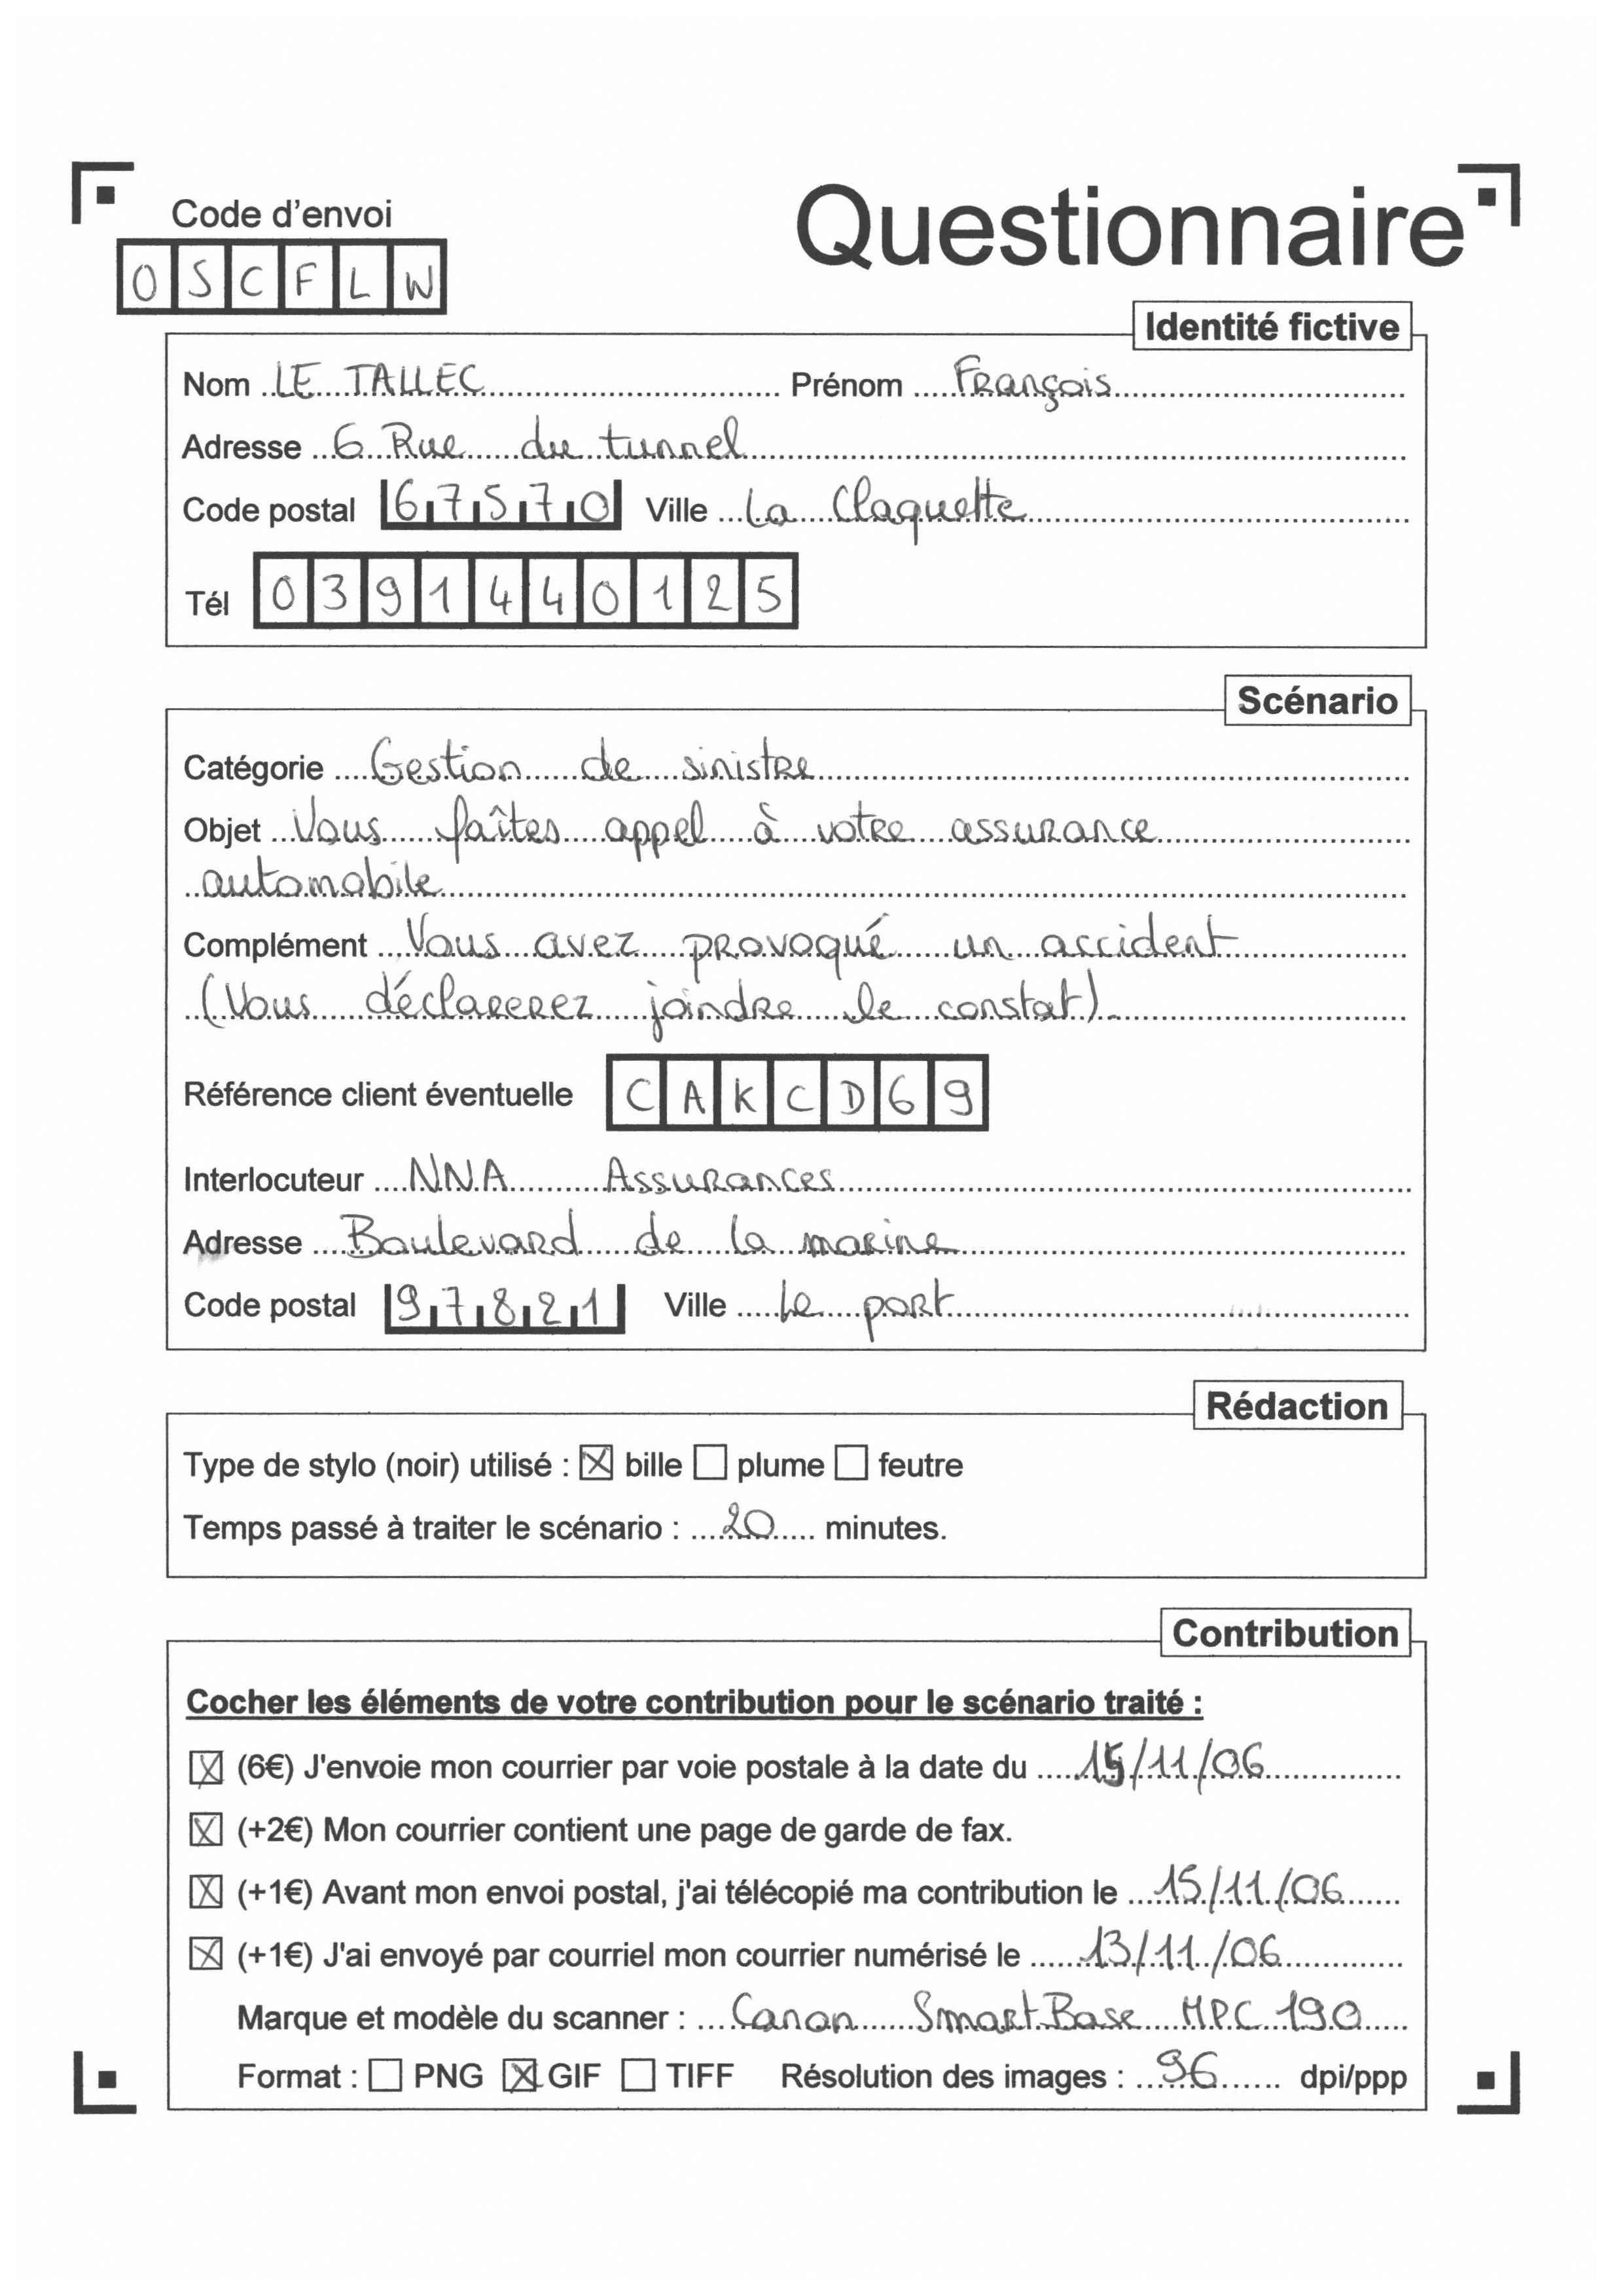 Code d'envoi
OSCFLW
Questionnaire
Identité fictive
Nom LE TALLEC Prénom François
Adresse 6 Rue du tunnel
Code postal 67570 Ville La Claquette
Tél 0391440125
Scénario
Catégorie Gestion de sinistre
Objet Vous faîtes appel à votre assurance
automobile
Complément Vous avez provoqué un accident
(Vous déclarerez joindre le constat).
Référence client éventuelle CAKCD69
Interlocuteur NNA Assurances
Adresse Boulevard de la marine
Code postal 97821 Ville Le port
Rédaction
Type de stylo (noir) utilisé : ☒ bille ☐ plume ☐ feutre
Temps passé à traiter le scénario : 20 minutes.
Contribution
Cocher les éléments de votre contribution pour le scénario traité :
☒ (6€) J'envoie mon courrier par voie postale à la date du 15/11/06
☒ (+2€) Mon courrier contient une page de garde de fax.
☒ (+1€) Avant mon envoi postal, j'ai télécopié ma contribution le 15/11/06
☒ (+1€) J'ai envoyé par courriel mon courrier numérisé le 13/11/06
Marque et modèle du scanner : Canon SmartBase MPC 190
Format : ☐ PNG ☒ GIF ☐ TIFF Résolution des images : 96 dpi/ppp